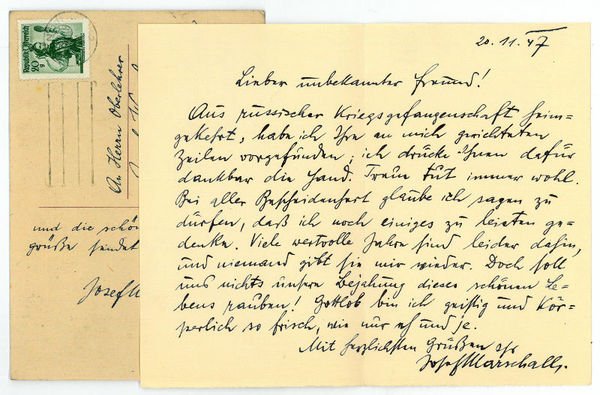 Republik Österreich
An Herrn Oberlehrer
und die schön
grüße sendet
Josef M
20. 11. 47
Lieber unbekannter Freund!
Aus russischer Kriegsgefangenschaft heim-
gekehrt, habe ich Ihre an mich gerichteten
Zeilen vorgefunden; ich drücke Ihnen dafür
dankbar die Hand. Treue tut immer wohl.
Bei aller Bescheidenheit glaube ich sagen zu
dürfen, daß ich noch einiges zu leisten ge-
denke. Viele wertvolle Jahre sind leider dahin,
und niemand gibt sie mir wieder. Doch soll
uns nichts unsere Bejahung dieses schönen Le-
bens rauben! Gottlob bin ich geistig und kör-
perlich so frisch, wie nur eh und je.
Mit herzlichsten Grüßen Ihr
Josef Marschall.